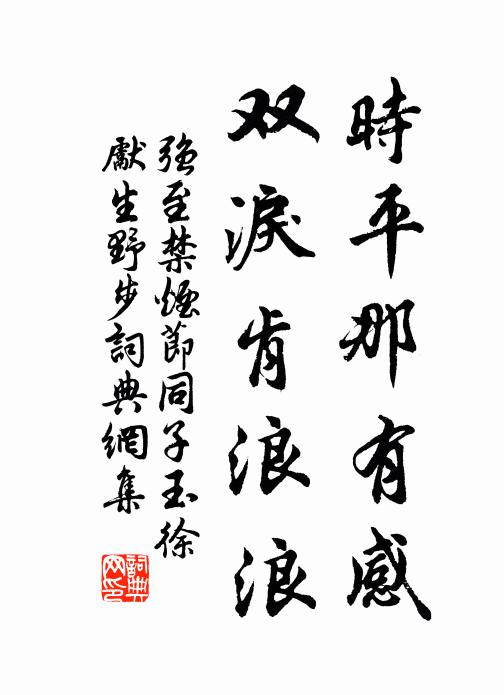 時平那有感
双淚肯浪浪
強至禁煙節同子玉徐
獻生野步詞典網集
詞典网印